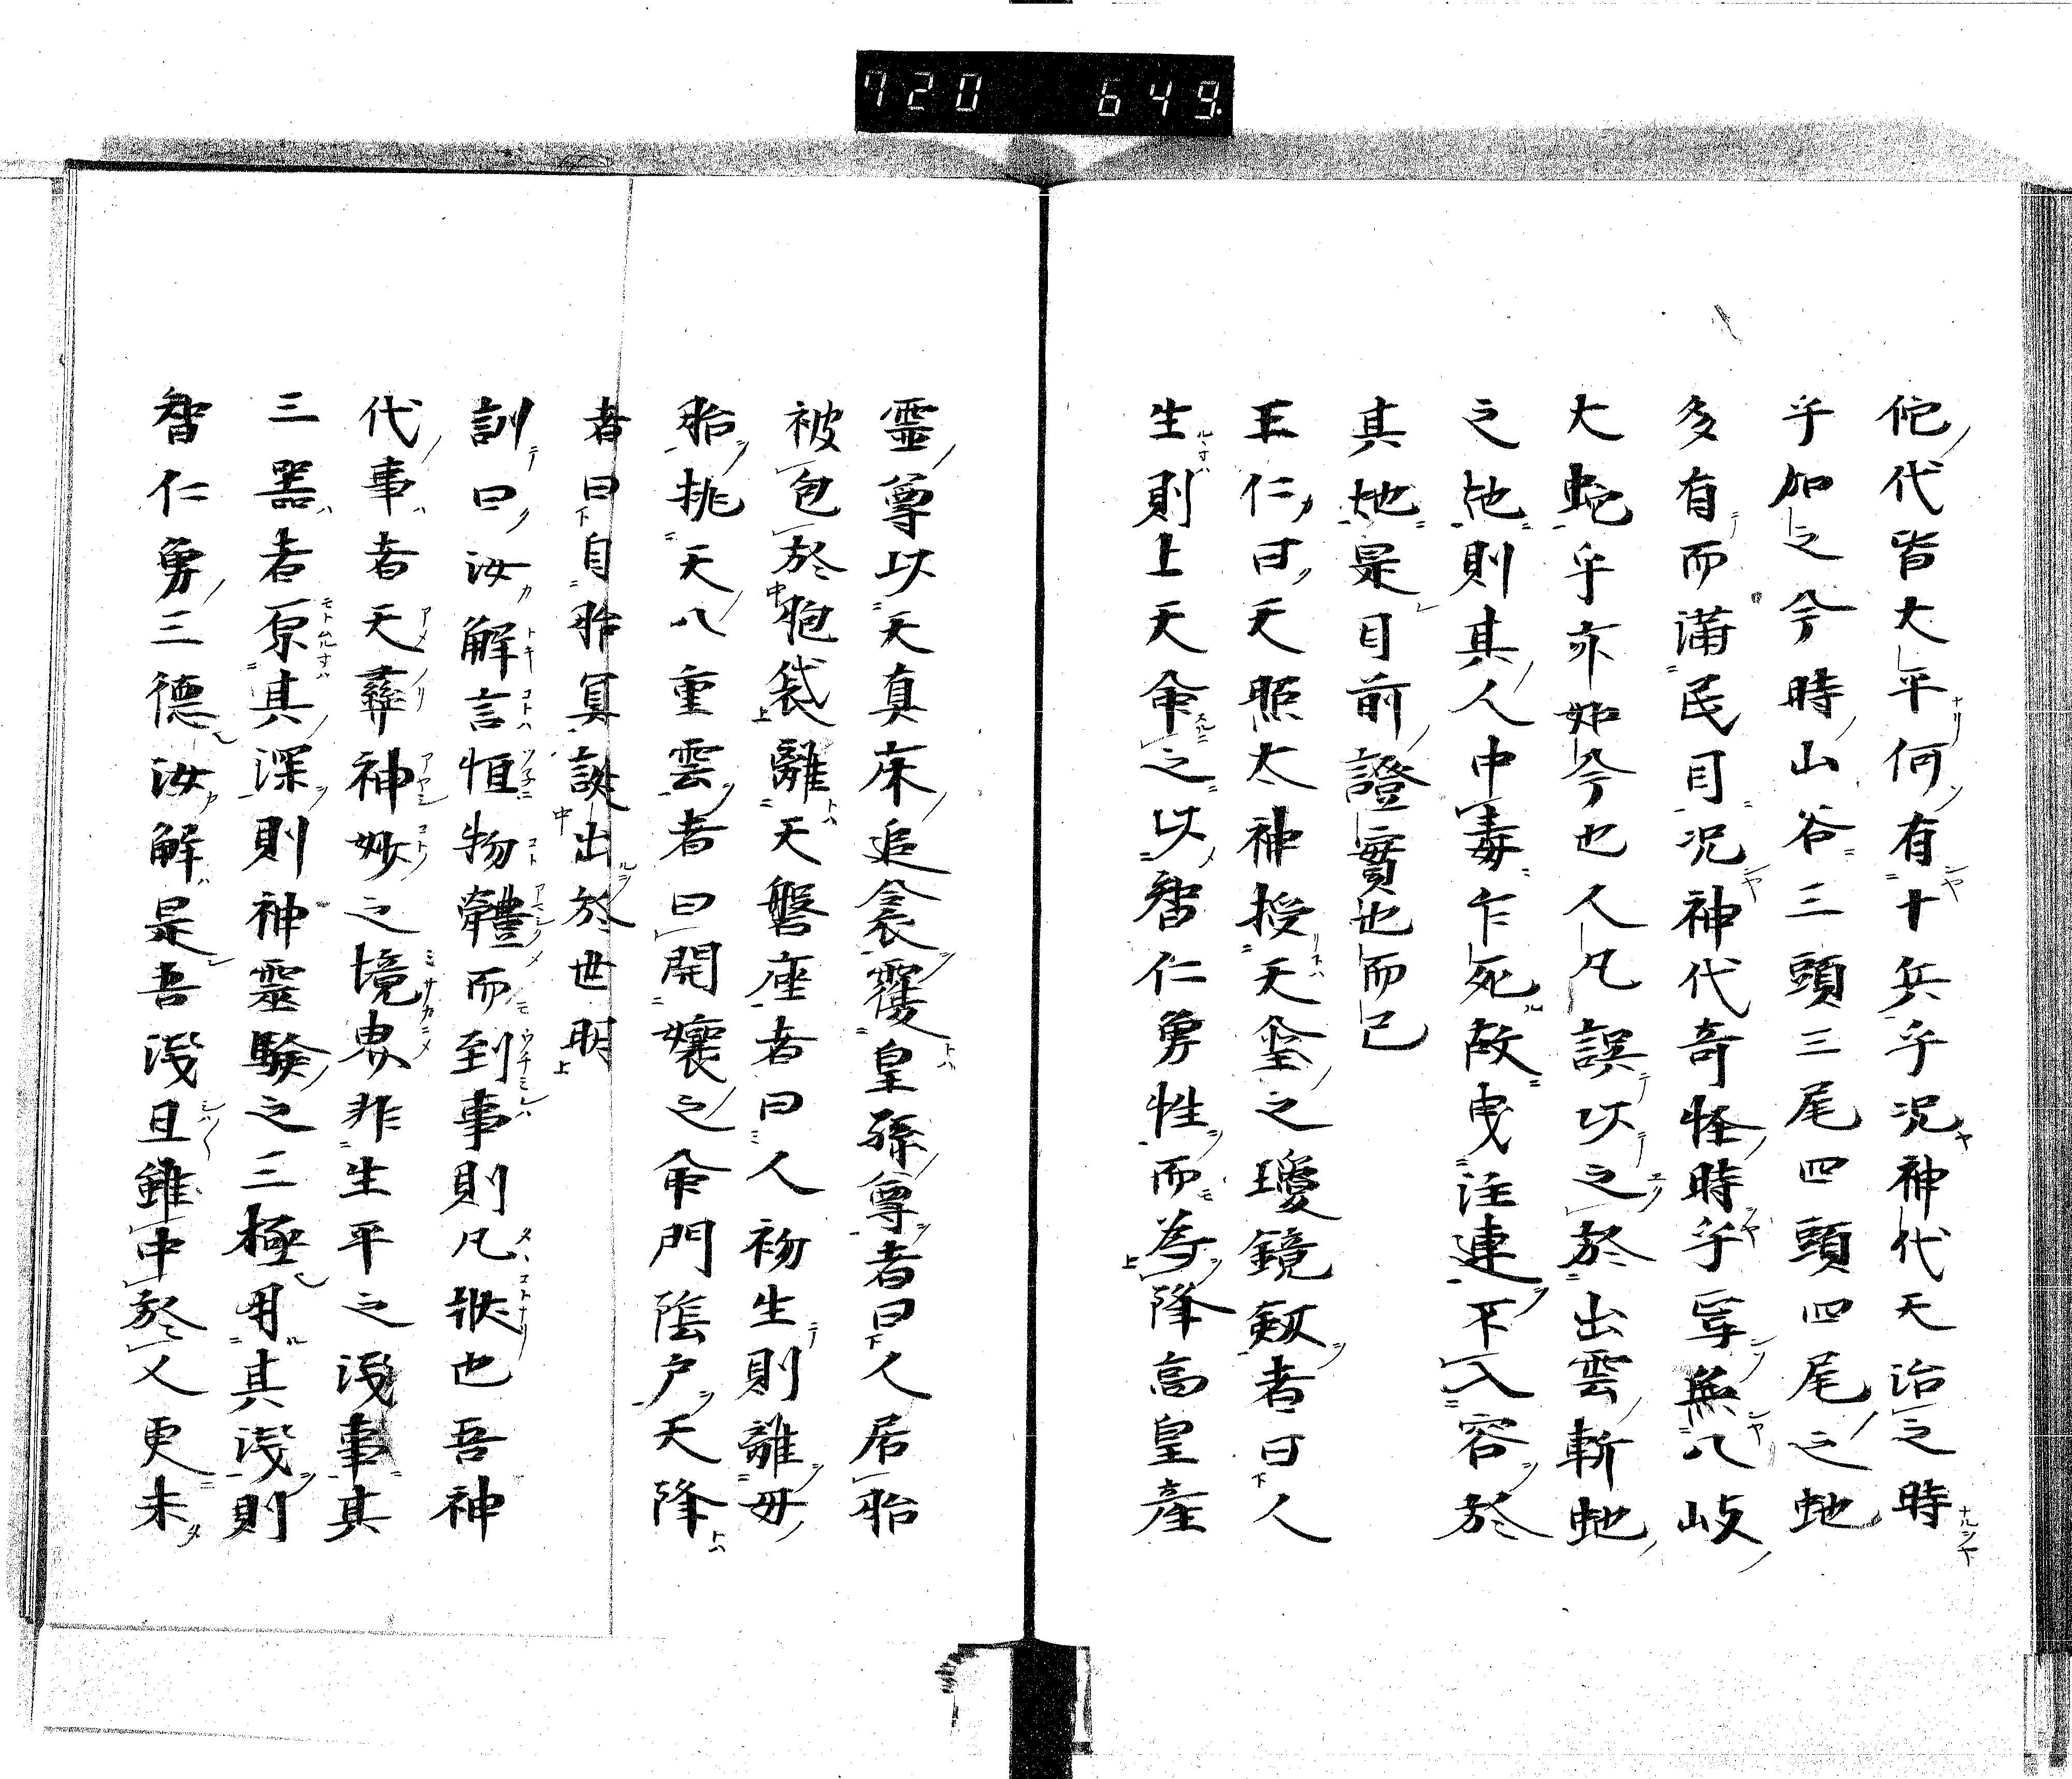 720 649.
佗代皆大平何有十兵乎況神代天治之時
乎加之今時山谷三頭三尾四頭四尾之虵
多有而滿民目況神代奇怪時乎寧無八岐
大蛇乎亦如今也人凡誤以之於出雲斬虵
之地則其人中毒乍死故曳注連不入容於
其地是目前證實也而已
王仁曰天照太神授天璽之瓊鏡劔者曰人
生則上天命之以智仁勇性而為降高皇產
靈尊以天真床追衾覆皇孫尊者曰人居胎
被包於胞袋離天磐座者曰人初生則離母
胎挑天八重雲者曰開孃之命門陰戶天降
者曰自胎冥誕出於世明
訓曰汝解言恒物體而到事則凡狀也吾神
代事者天彞神妙之境界非生平之淺事其
三器者原其深則神靈驗之三極用其淺則
智仁勇三德汝解是吾淺且雖中於乂更未